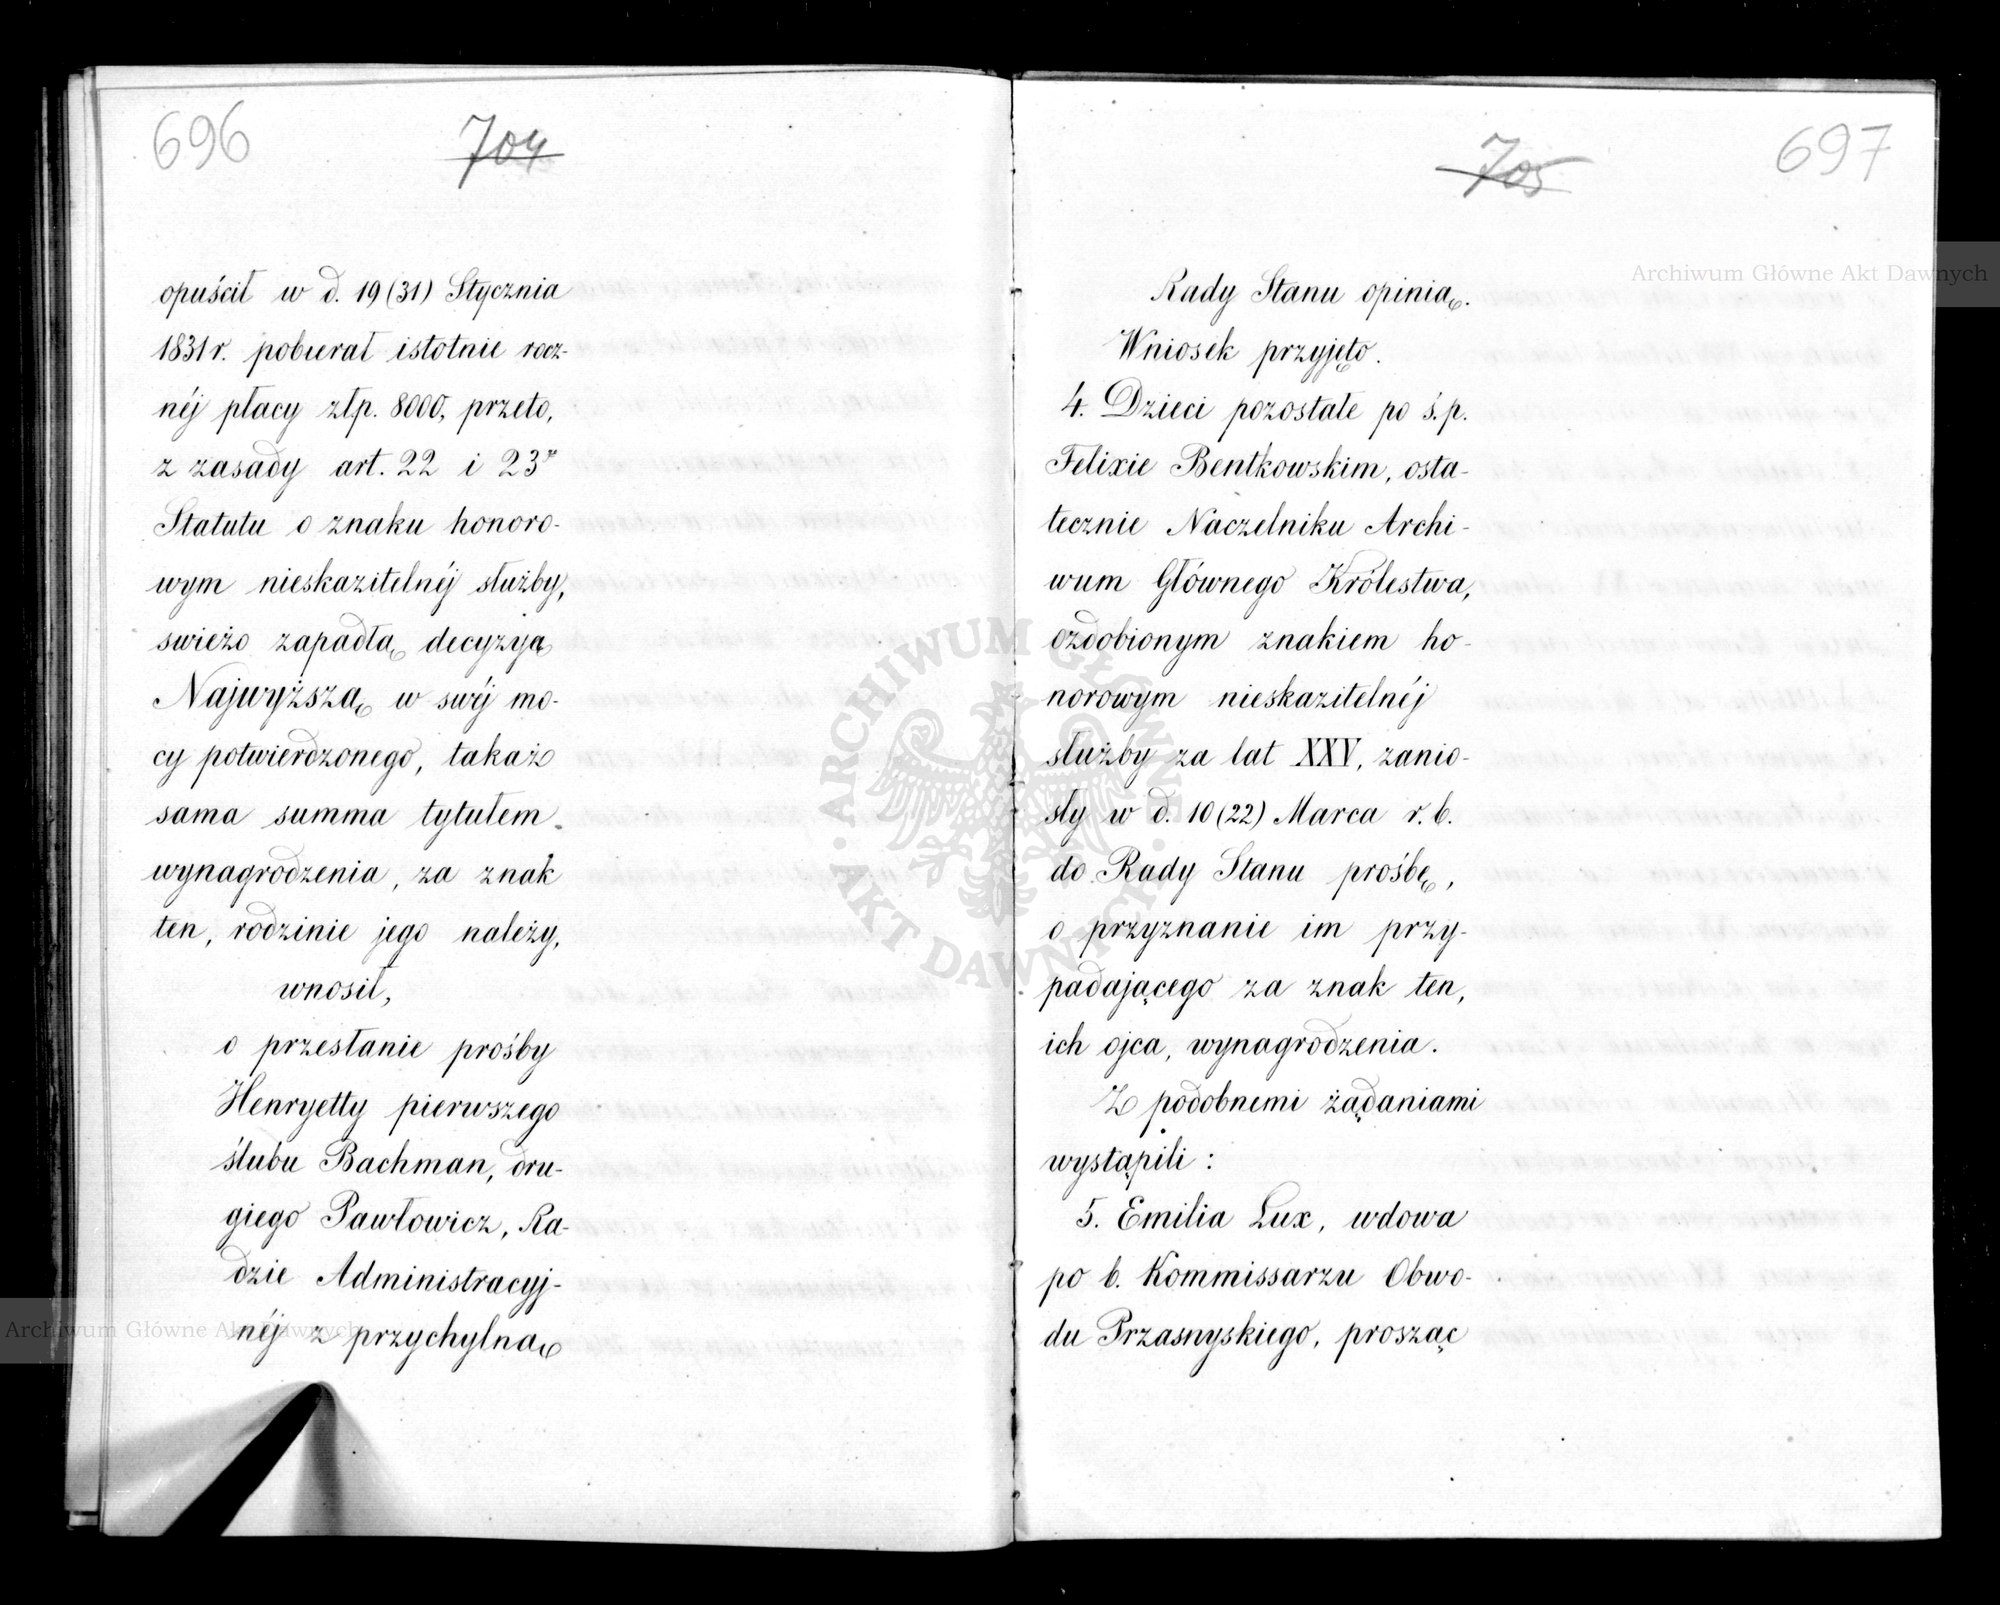 696
704
opuścił w d. 19 (31) Stycznia
1831 r. pobierał istotnie rocz-
néj płacy złp. 8000, przeto,
z zasady art. 22 i 23
Statutu o znaku honoro-
wym nieskazitelnéj służby,
swieżo zapadłą decyzyą
Najwyższą w swéj mo-
cy potwierdzonego, takaż
sama summa tytułem
wynagrodzenia, za znak
ten, rodzinie jego należy,
wnosił,
o przesłanie prośby
Henryetty pierwszego
ślubu Bachman, dru-
giego Pawłowicz, Ra-
dzie Administracyj-
néj z przychylną
705
697
Rady Stanu opinią.
Wniosek przyjęto.
4. Dzieci pozostałe po ś. p.
Felixie Bentkowskim, osta-
tecznie Naczelniku Archi-
wum Głównego Królestwa,
ozdobionym znakiem ho-
norowym nieskazitelnéj
służby za lat XXV, zanio-
sły w d. 10 (22) Marca r. b.
do Rady Stanu prośbę,
o przyznanie im przy-
padającego za znak ten,
ich ojca, wynagrodzenia.
Z podobnemi żądaniami
wystąpili:
5. Emilia Lux, wdowa
po b. Kommissarzu Obwo-
du Przasnyskiego, prosząc
Archiwum Główne Akt Dawnych
Archiwum Główne Akt Dawnych
ARCHIWUM GŁÓWNE
AKT DAWNYCH